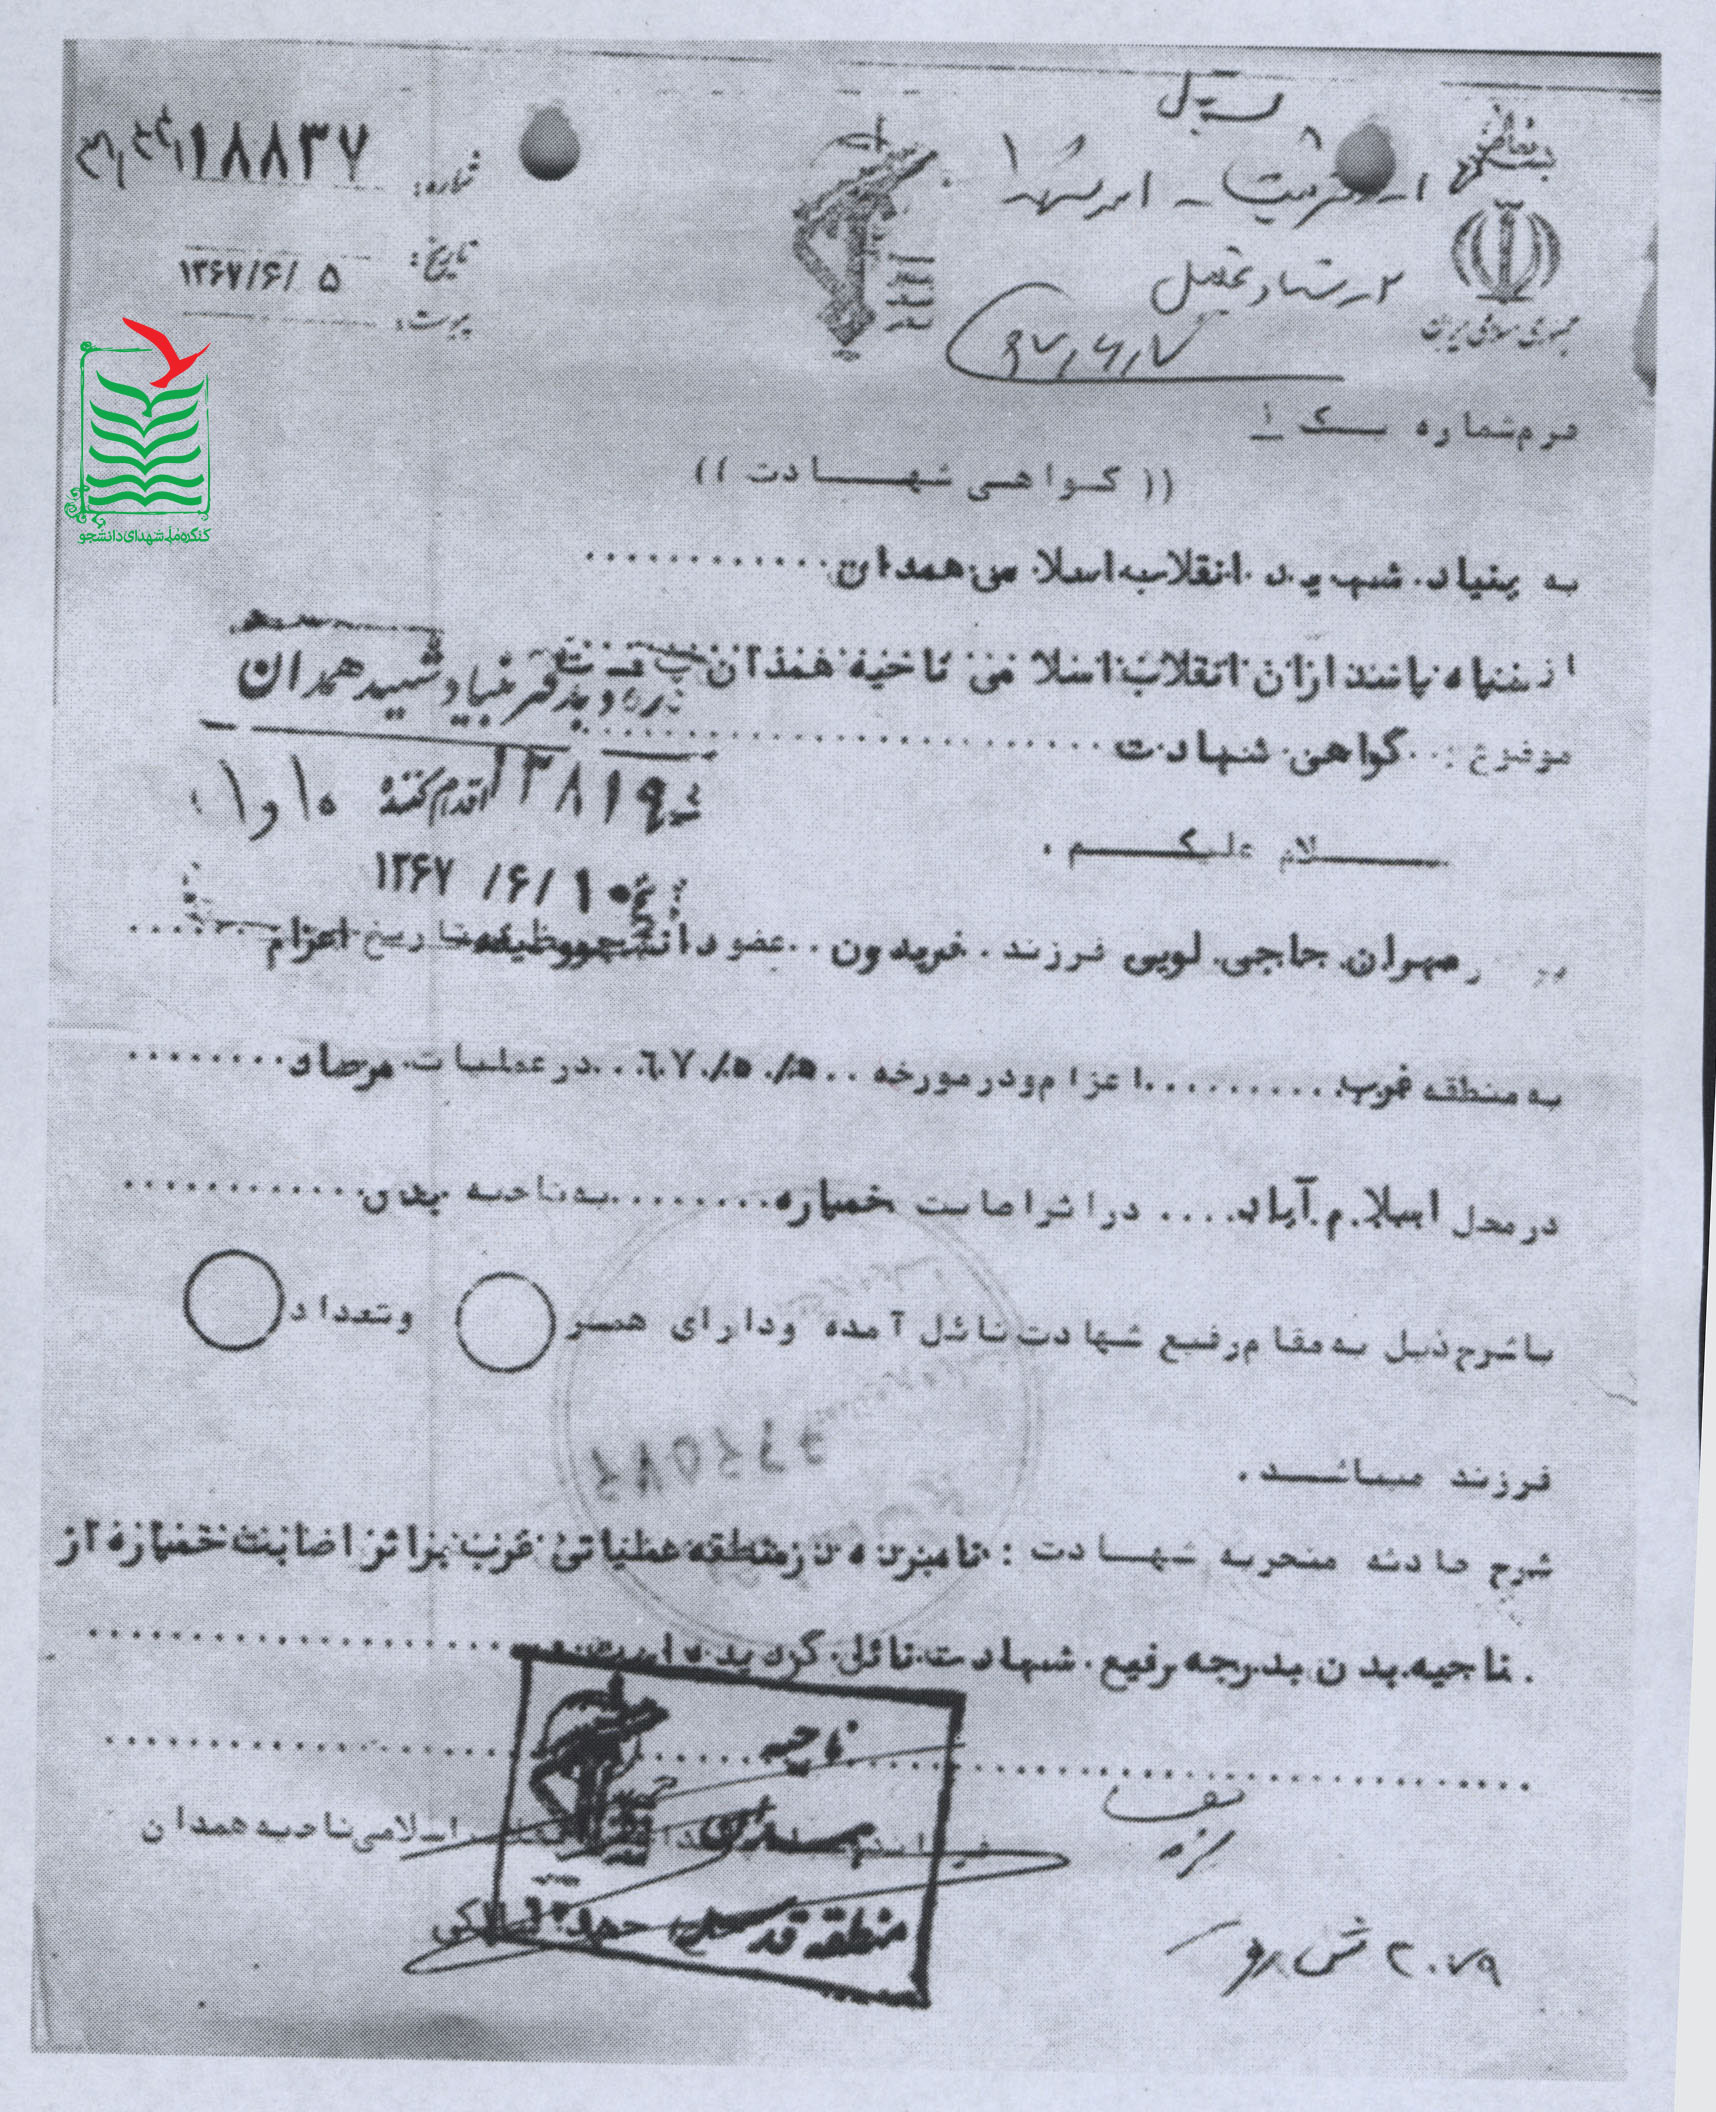 بسمه تعالی
جمهوری اسلامی ایران
شماره: ۱۸۸۳۷
تاریخ: ۵ /۱۳۶۷/۶
پیوست:
کنگره ملی شهدای دانشجو
فرم شماره یک ۱
(( گواهی شهادت ))
به بنیاد شهید انقلاب اسلامی همدان
از سپاه پاسداران انقلاب اسلامی ناحیه همدان
دفتر بنیاد شهید همدان
موضوع: گواهی شهادت
۱۳۸۱۹ اقدام کننده ۱۰ و ۱
سلام علیکم.
۱۰ /۶/ ۱۳۶۷
برادر مهران حاجی لویی فرزند فریدون عضو دانشجو وظیفه تاریخ اعزام
به منطقه غرب اعزام و در مورخه ۵/ ۵/ ۶۷ در عملیات مرصاد
در محل اسلام آباد در اثر اصابت خمپاره به ناحیه بدن
با شرح ذیل به مقام رفیع شهادت نائل آمده و دارای همسر ○ و تعداد ○
فرزند میباشد.
شرح حادثه منجر به شهادت: نامبرده در منطقه عملیاتی غرب بر اثر اصابت خمپاره از
ناحیه بدن بدرجه رفیع شهادت نائل گردیده است
ناحیه
اسلامی ناحیه همدان
منطقه قدس